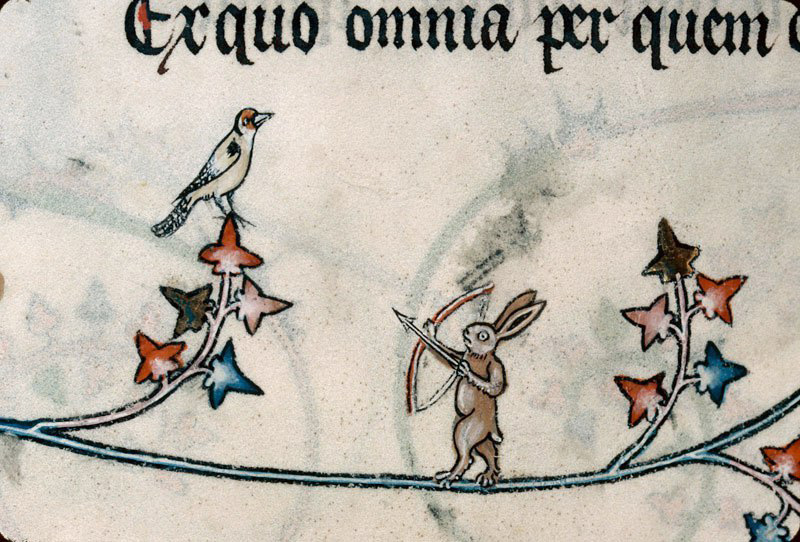 Exquo omnia per quem